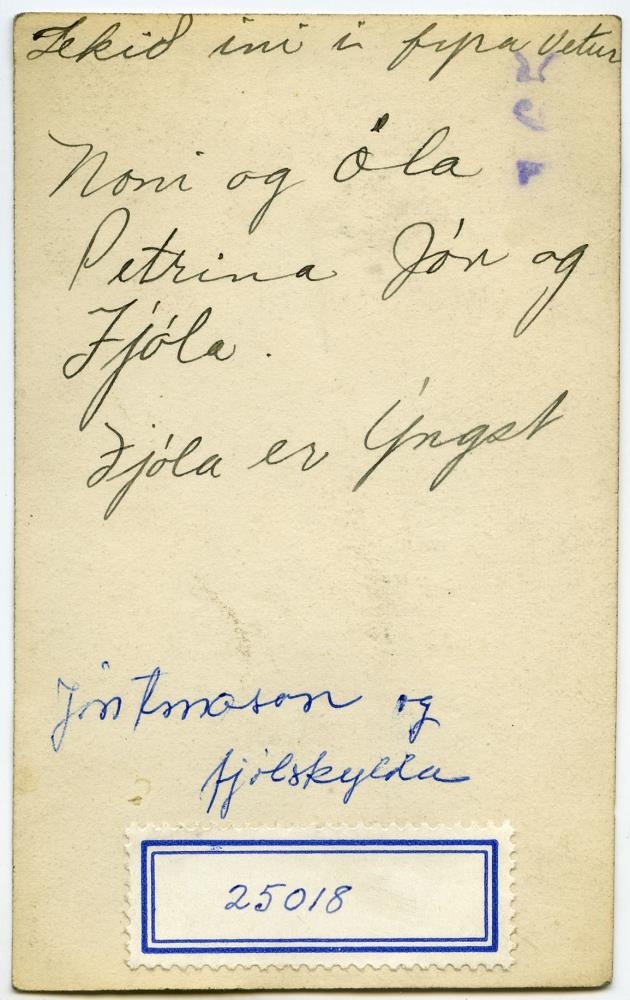 Tekið ini í fyra vetur
Noni og Óla
Petrina Jón og
Fjóla.
Fjóla er Ýngst
Jón og
fjölskylda
25018